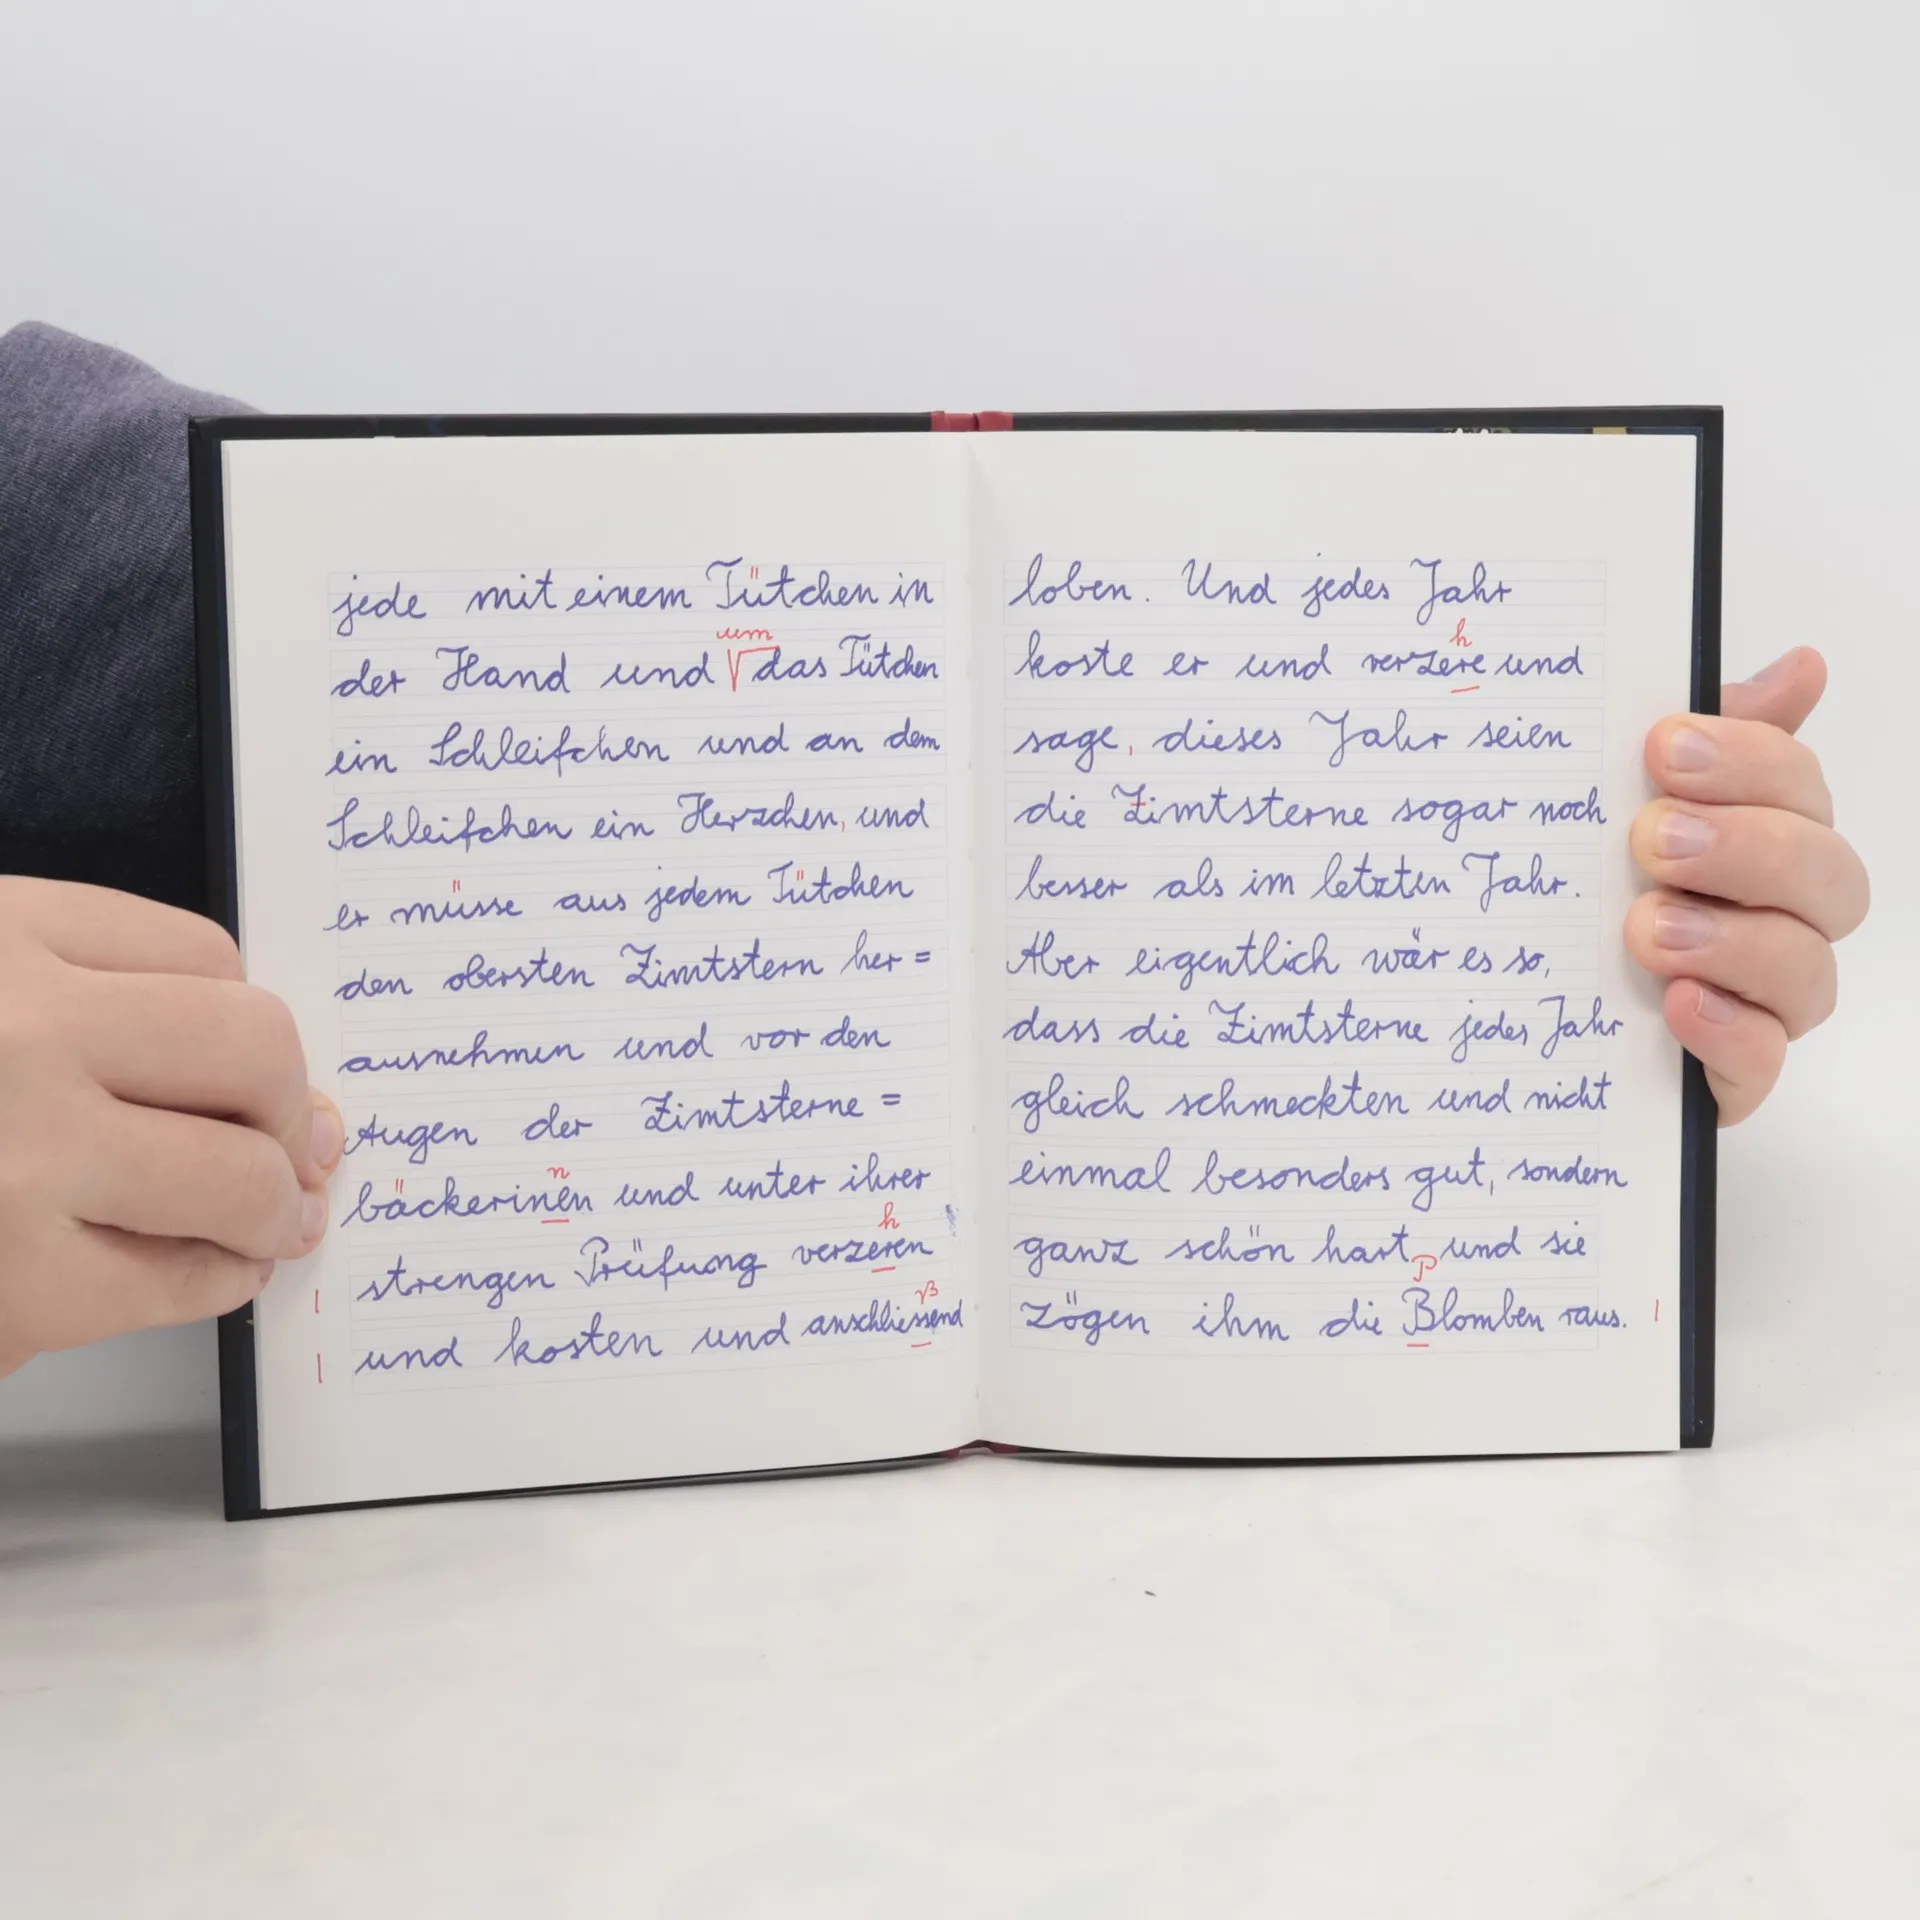 jede mit einem Tütchen in
um
der Hand und √ das Tütchen
ein Schleifchen und an dem
Schleifchen ein Herzchen, und
er müsse aus jedem Tütchen
den obersten Zimtstern her=
ausnehmen und vor den
Augen der Zimtsterne=
n
bäckerinen und unter ihrer
h
strengen Prüfung verzeren
ß
und kosten und anschliessend
loben. Und jedes Jahr
h
koste er und verzere und
sage, dieses Jahr seien
die Zimtsterne sogar noch
besser als im letzten Jahr.
Aber eigentlich wär es so,
dass die Zimtsterne jedes Jahr
gleich schmeckten und nicht
einmal besonders gut, sondern
ganz schön hart, und sie
P
zögen ihm die Blomben raus.